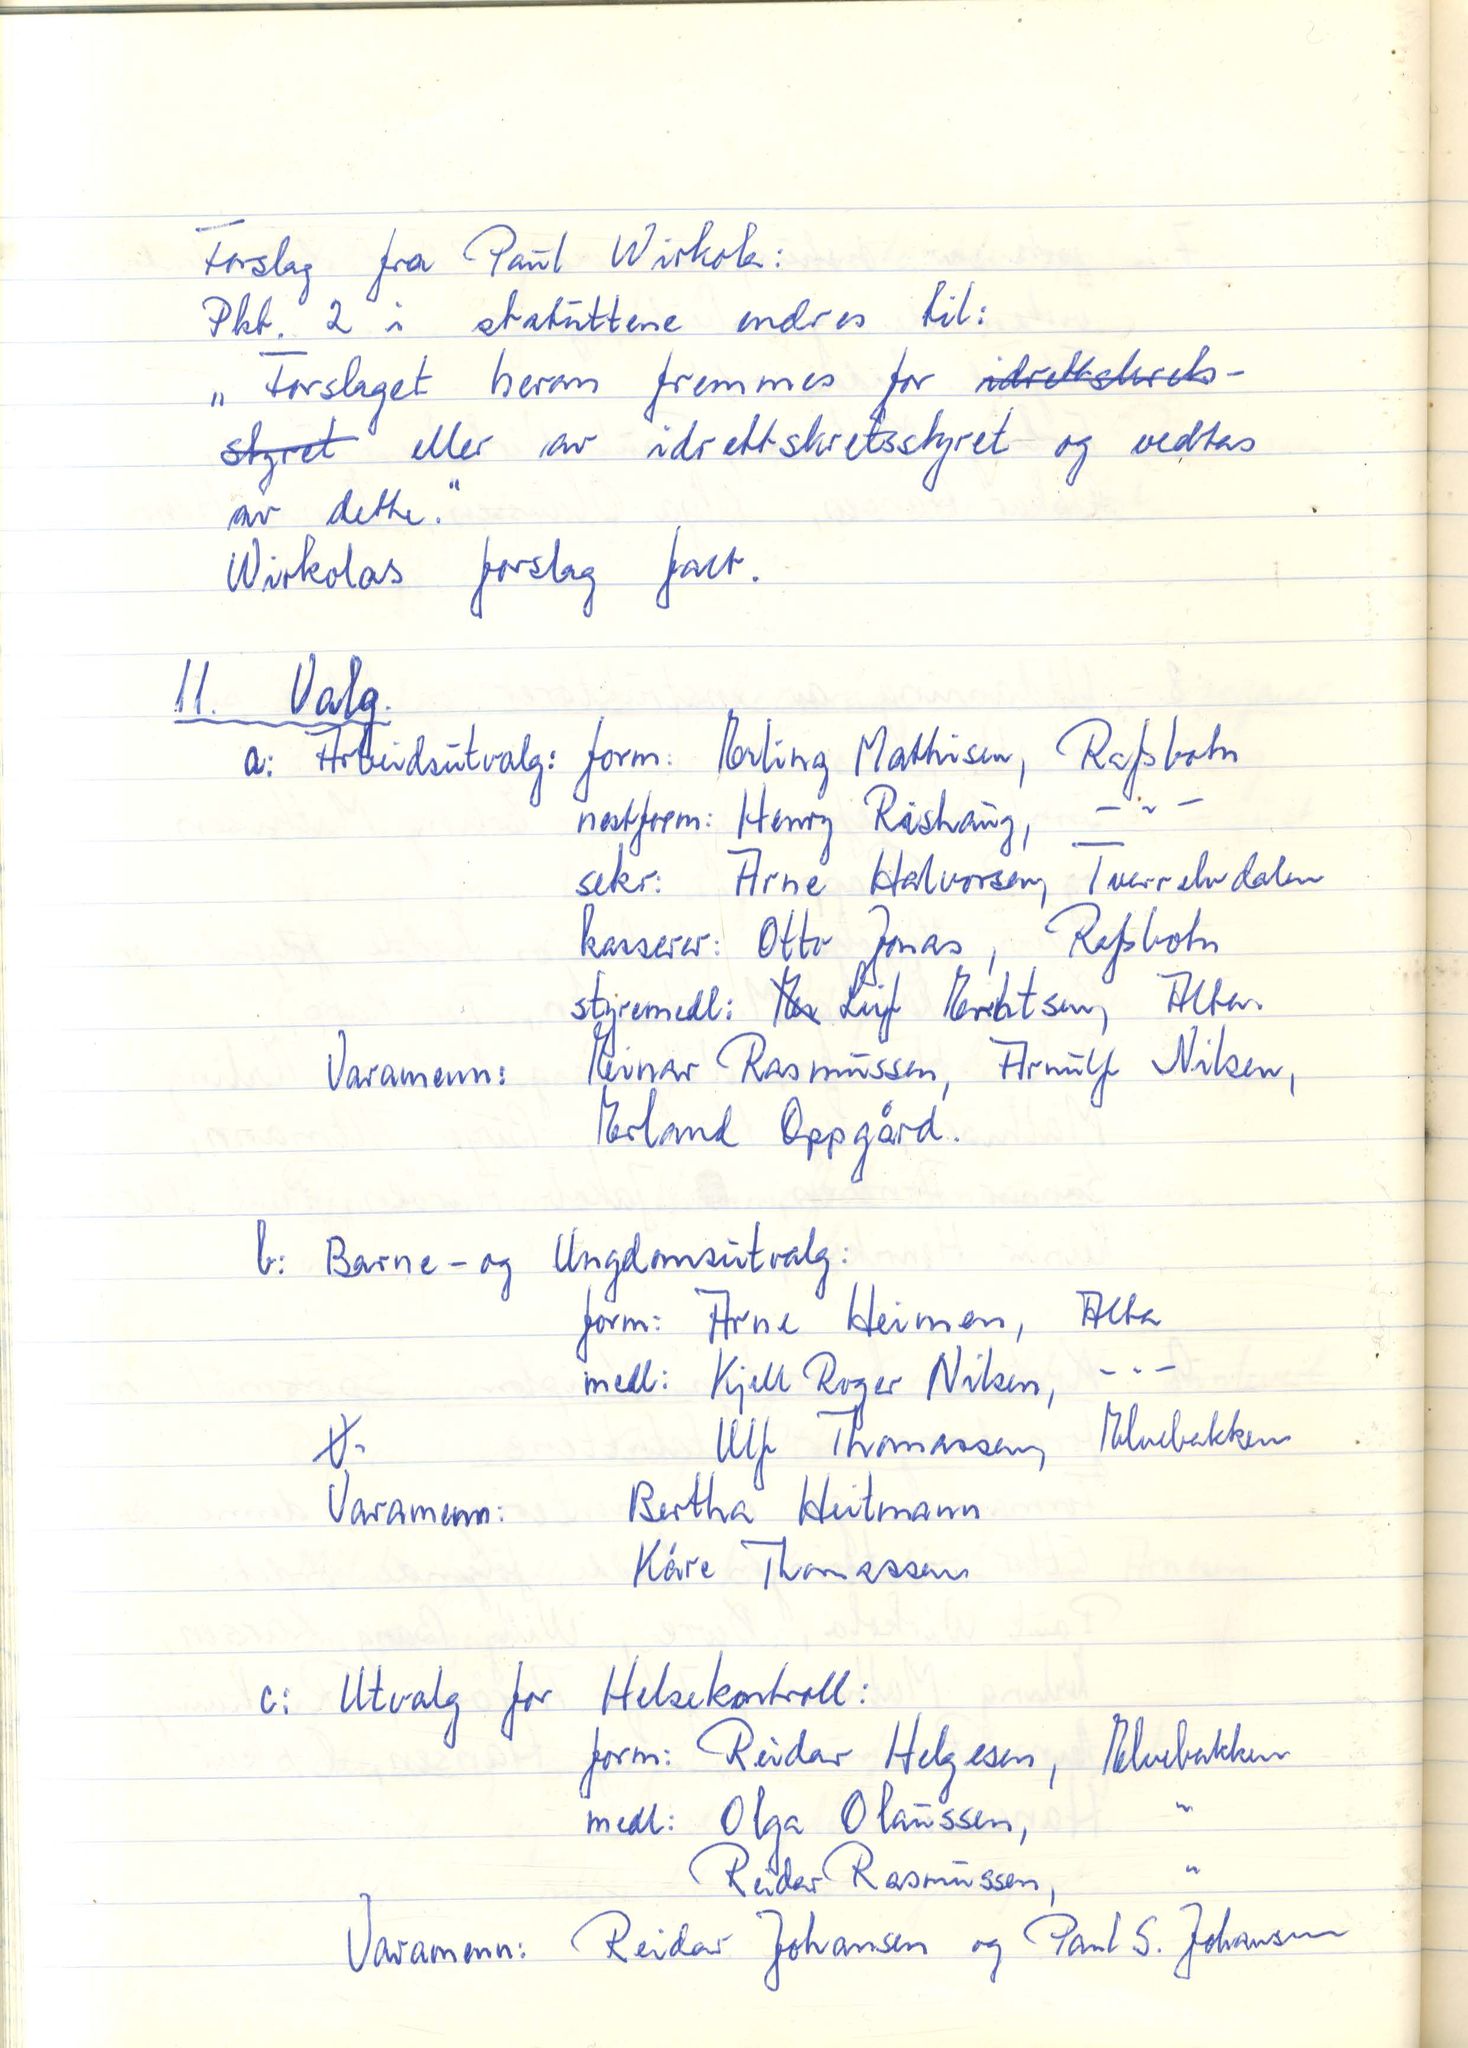 Forslag fra Paul Wirkola:
Pkt. 2 i statuttene endres til:
"Forslaget herom fremmes for idrettskrets-
styret eller av idrettskretsstyret og vedtas
av dette."
Wirkolas forslag falt.
11. Valg.
a: Arbeidsutvalg: form: Erling Mathisen, Rafsbotn
nestform: Henry Rishaug, - " -
sekr: Arne Halvorsen, Tverrelvdalen
kasserer: Otto Jonas, Rafsbotn
styremedl: Leif Eretsen, Alta.
Varamenn: Einar Rasmussen, Arnulf Nilsen,
Erland Oppgård.
b: Barne- og Ungdomsutvalg:
form: Arne Heimen, Alta
medl: Kjell Roger Nilsen, - " -
Ulf Thomassen, Elvebakken
Varamenn: Bertha Heitmann
Kåre Thomassen
c: Utvalg for Helsekontroll:
form: Reidar Helgesen, Elvebakken
medl: Olga Olaussen, "
Reidar Rasmussen, "
Varamenn: Reidar Johansen og Paul S. Johansen